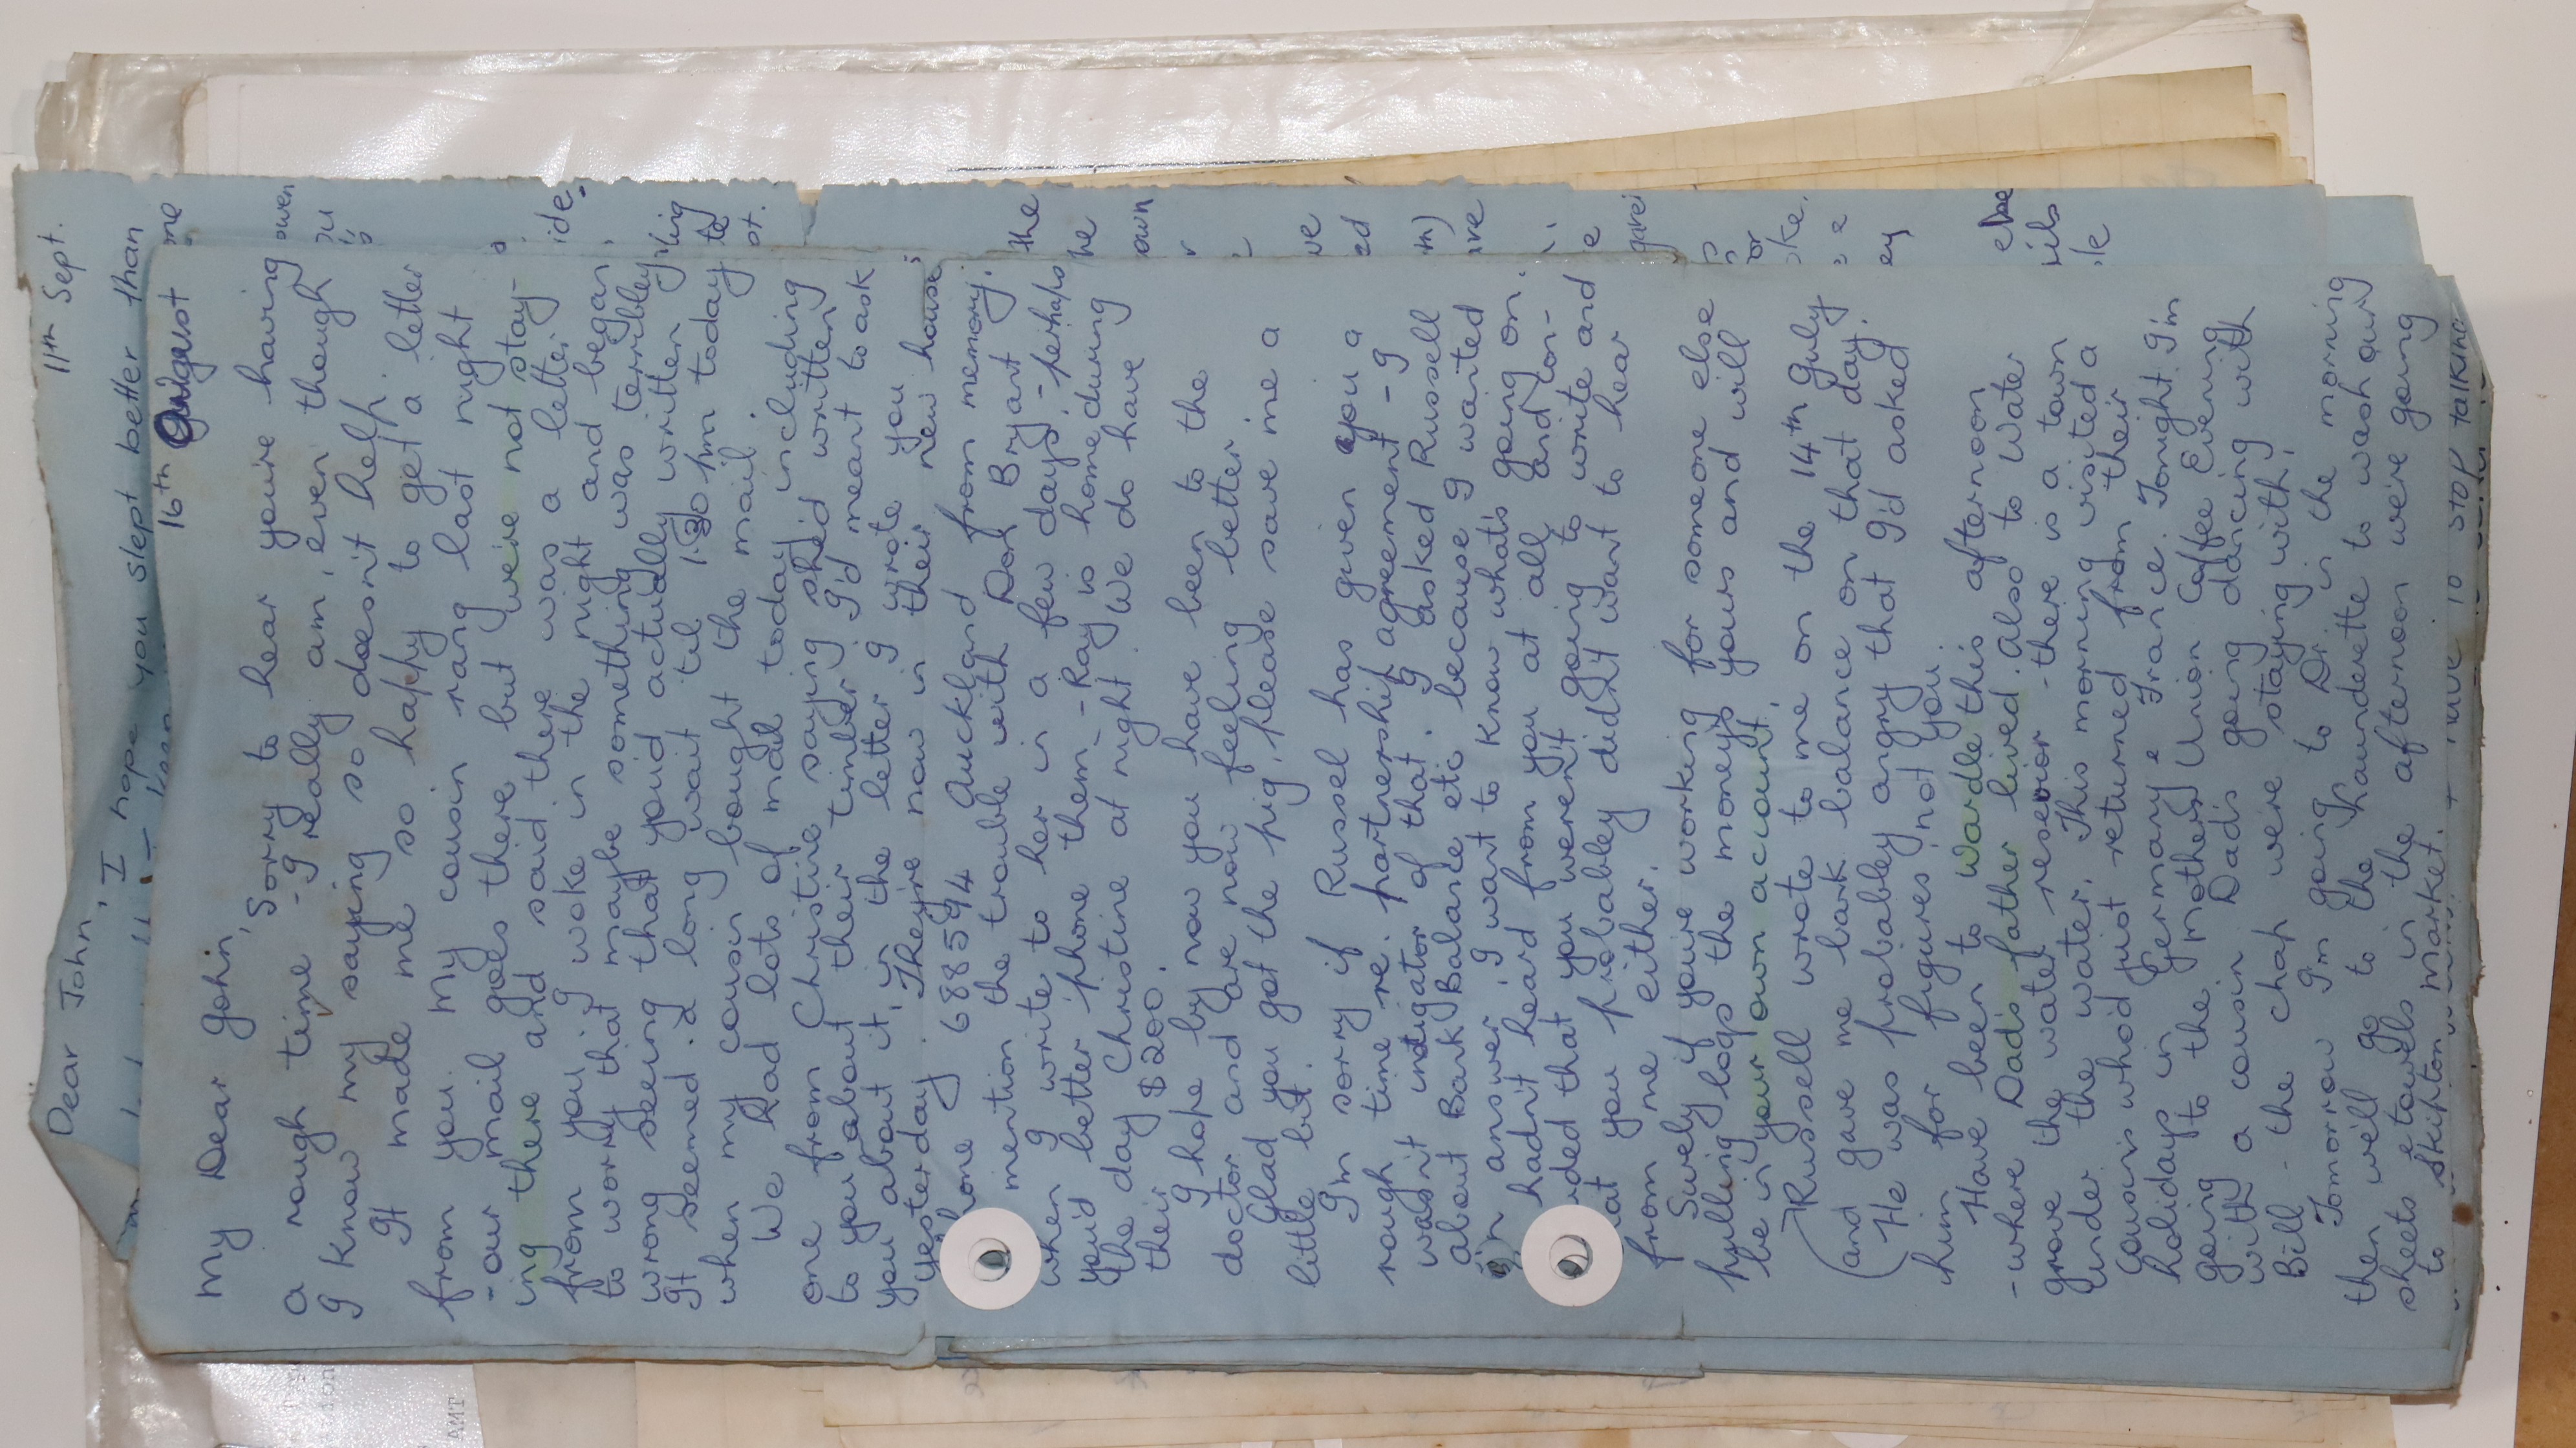 11th Sept.
Dear John,
I hope you slept better than
16th August
My Dear John,
Sorry to hear you're having
a rough time - I really am, even though
I know my saying so doesn't help.
It made me so happy to get a letter
from you. My cousin rang last night
- our mail goes there but we're not stay-
ing there and said there was a letter
from you, I woke in the night and began
to worry that maybe something was terribley
wrong seeing that you'd actually written
It seemed a long wait til 1.30pm today
when my cousin bought the mail.
We had lots of mail today including
one from Christine saying she'd written
to you about their timber, I'd meant to ask
you about it in the letter I wrote you
yesterday. They're now in their new house
phone 688594 Auckland from memory.
mention the trouble with Don Bryant
when I write to her in a few days, - perhaps
you'd better 'phone them - Ray is home during
the day Christine at night. We do have
their $200.
I hope by now you have been to the
doctor and are now feeling better
Glad you got the pig, please save me a
little bit.
I'm sorry if Russel has given you a
rough time re. partnership agreement - I
wasn't instigator of that. I asked Russell
about Bank Balance etc because I wanted
an answer, I want to know what's going on.
hadn't heard from you at all and con-
uded that you weren't going to write and
hat you probabley didn't want to hear
from me either.
Surely if you're working for someone else
hulling logs the moneys yours and will
be in your own account.
Russell wrote to me on the 14th July
(and gave me bank balance on that day.
He was probabley angry that I'd asked
him for figures, not you.
Have been to Wardle this afternoon
- where Dad's father lived. Also to Water
grove the water resevior - there is a town
under the water. This morning visited a
cousin who'd just returned from their
holidays in Germany & France. Tonight I'm
going to the Mothers Union Coffee Evening
with a cousin Dad's going dancing with
Bill - the chap we're staying with,
Tomorrow I'm going to Di in the morning
then we'll go to the Laundrette to wash our
sheets & towels in the afternoon we're going
to Skipton market.
have to stop talking
one
owen
ou
is
ide.
ling
te
ot.
the
he
own
r
we
ed
th)
ive
e
gave
or
ke.
e
ey
else
ils
le
AMT